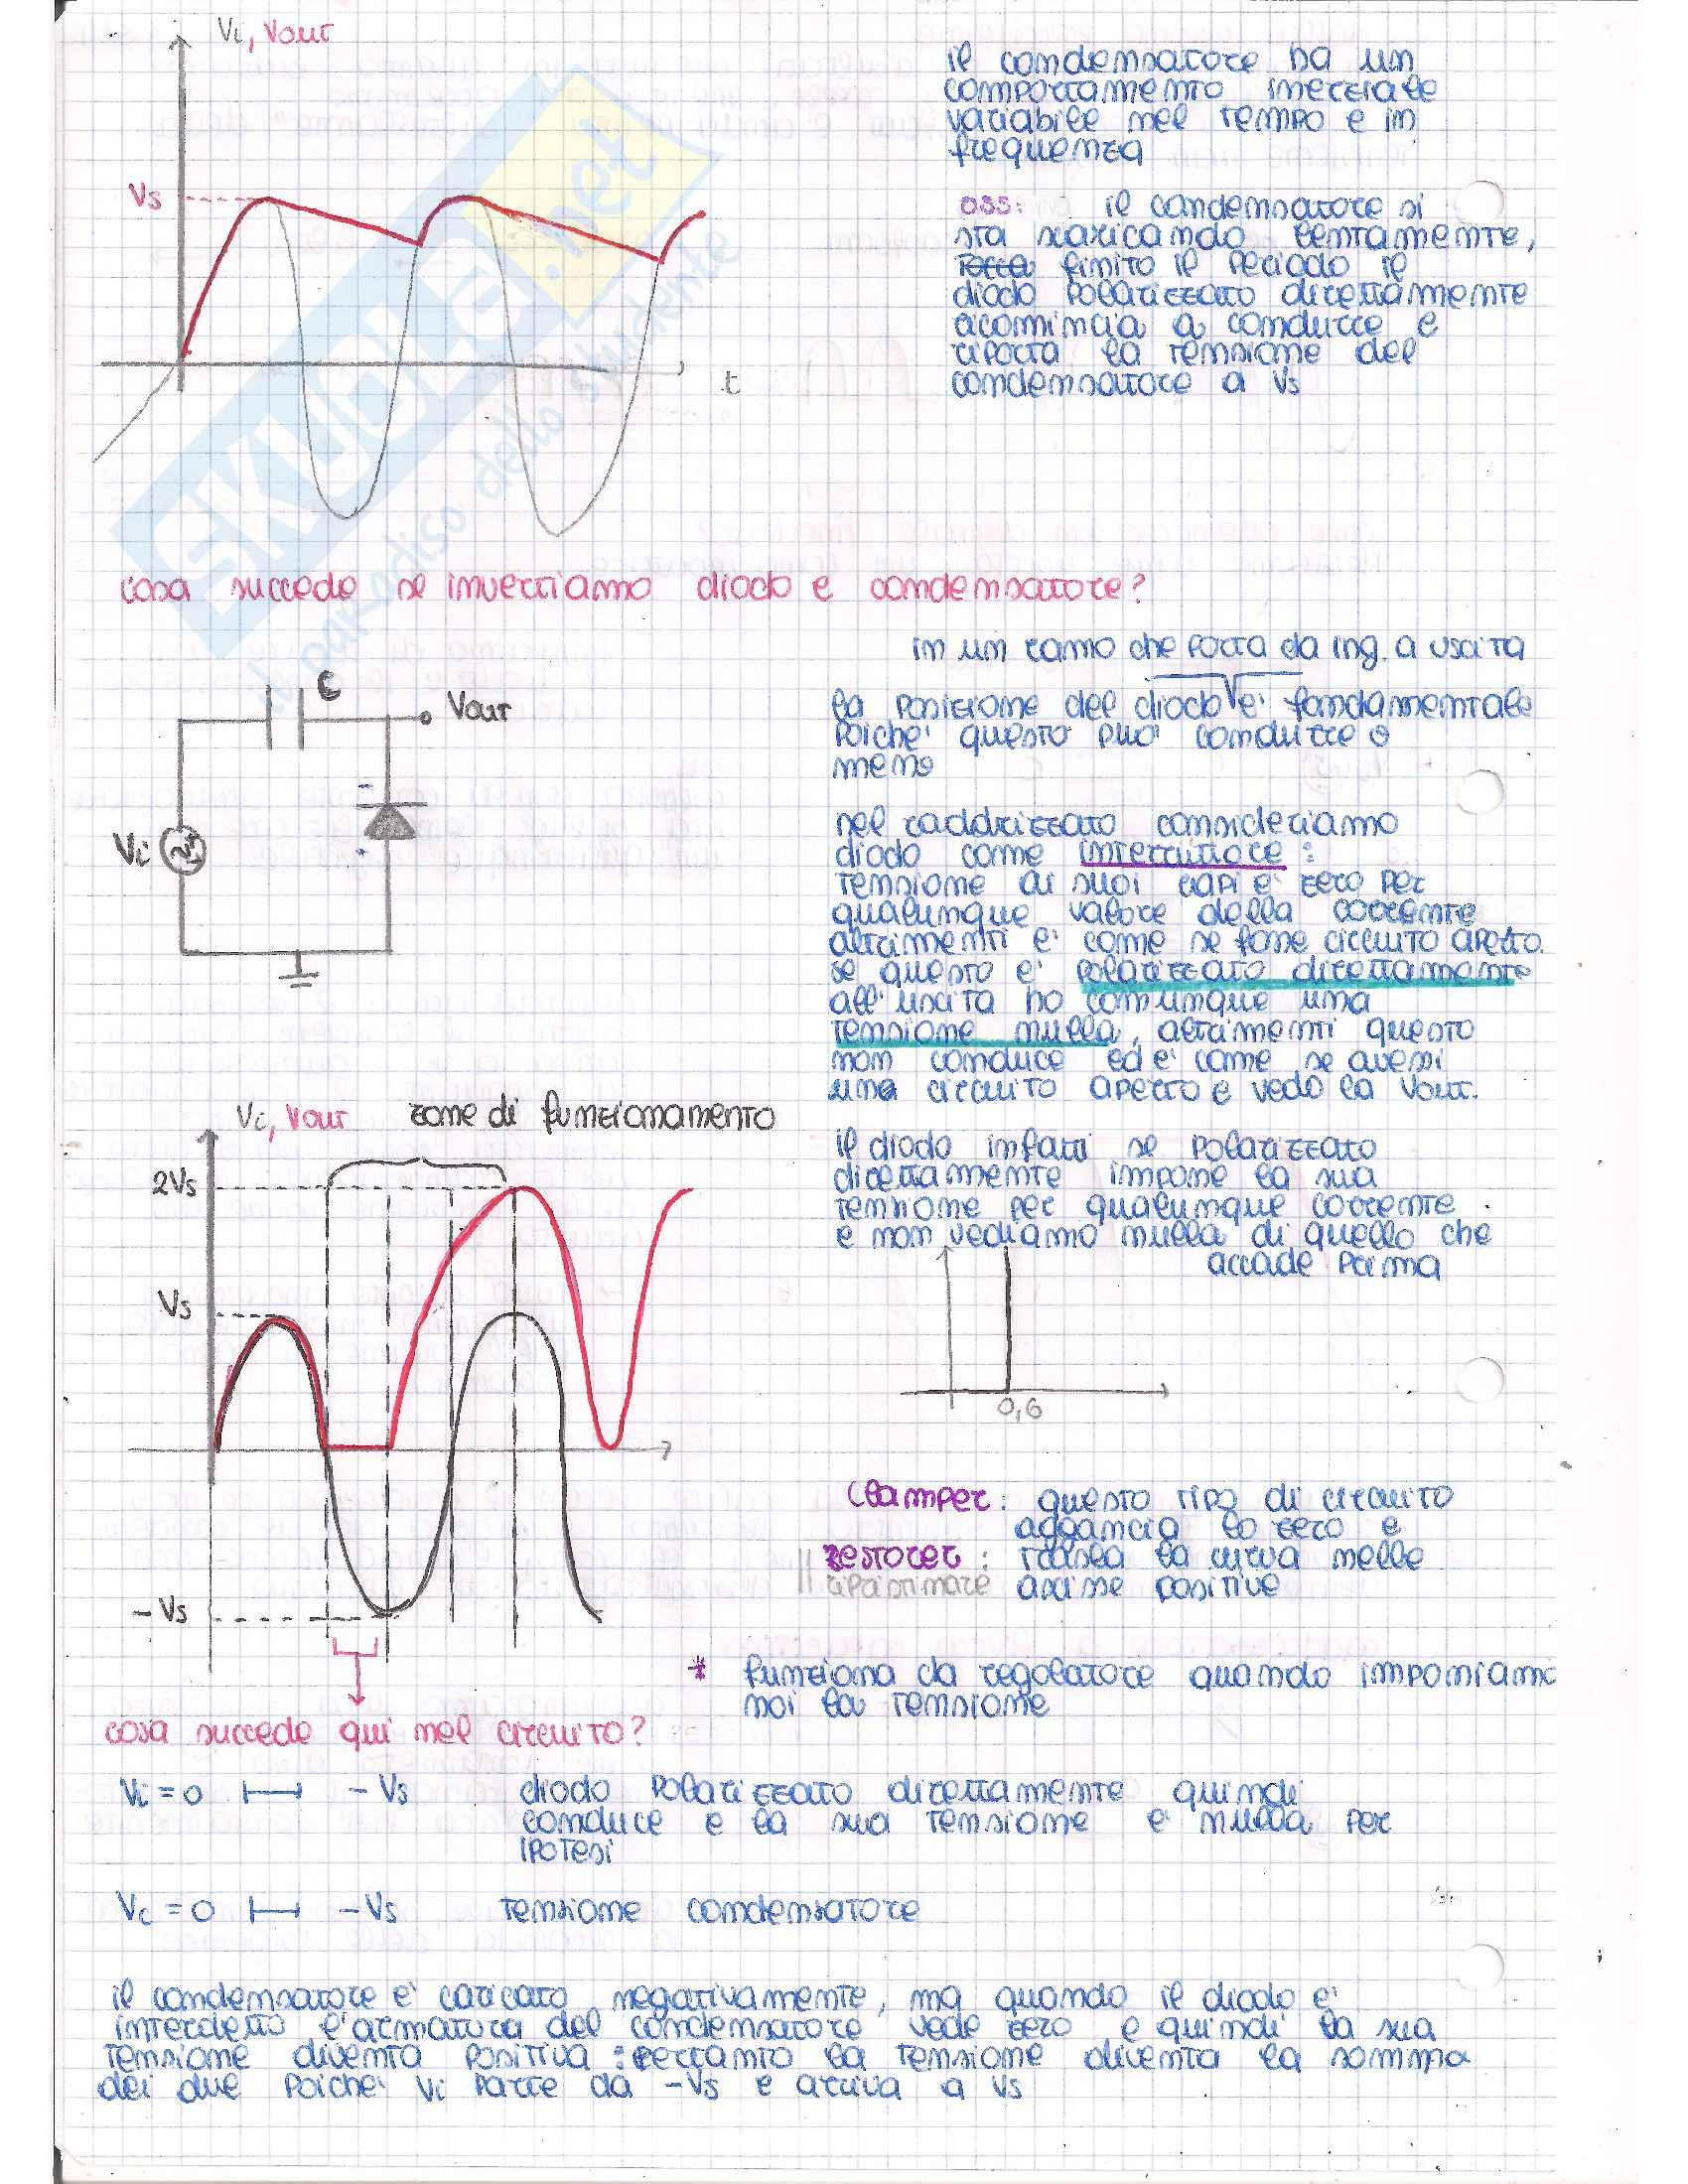 Vi, Vout
il condensatore ha un
comportamento inerziale
variabile nel tempo e in
frequenza
Vs
oss: il condensatore si
sta scaricando lentamente,
finito il periodo il
diodo polarizzato direttamente
ricomincia a condurre e
riporta la tensione del
condensatore a Vs
t
SKUOLA.net
il paradiso dello studente
cosa succede se invertiamo diodo e condensatore?
in un ramo che porta da ing. a uscita
C
Vout
la posizione del diodo è fondamentale
poiché questo può condurre o
meno
Vi
-
+
nel raddrizzato consideriamo
diodo come interruttore:
tensione ai suoi capi è zero per
qualunque valore della corrente
altrimenti è come se fosse circuito aperto.
se questo è polarizzato direttamente
all'uscita ho comunque una
tensione nulla, altrimenti questo
non conduce ed è come se avessi
una circuito aperto e vedo la Vout.
Vi, Vout zone di funzionamento
il diodo infatti se polarizzato
direttamente impone la sua
tensione per qualunque corrente
e non vediamo nulla di quello che
accade prima
2Vs
Vs
0,6
-Vs
Clamper: questo tipo di circuito
aggancia lo zero e
Restorer: trasla la curva nelle
ripristinare ascisse positive
* funziona da regolatore quando imponiamo
noi la tensione
cosa succede qui nel circuito?
Vi = 0 ⟼ - Vs diodo polarizzato direttamente quindi
conduce e la sua tensione è nulla per
ipotesi
Vc = 0 ⟼ - Vs tensione condensatore
il condensatore è caricato negativamente, ma quando il diodo è
interdetto l'armatura del condensatore vede zero e quindi la sua
tensione diventa positiva : pertanto la tensione diventa la somma
dei due poiché Vi parte da -Vs e arriva a Vs